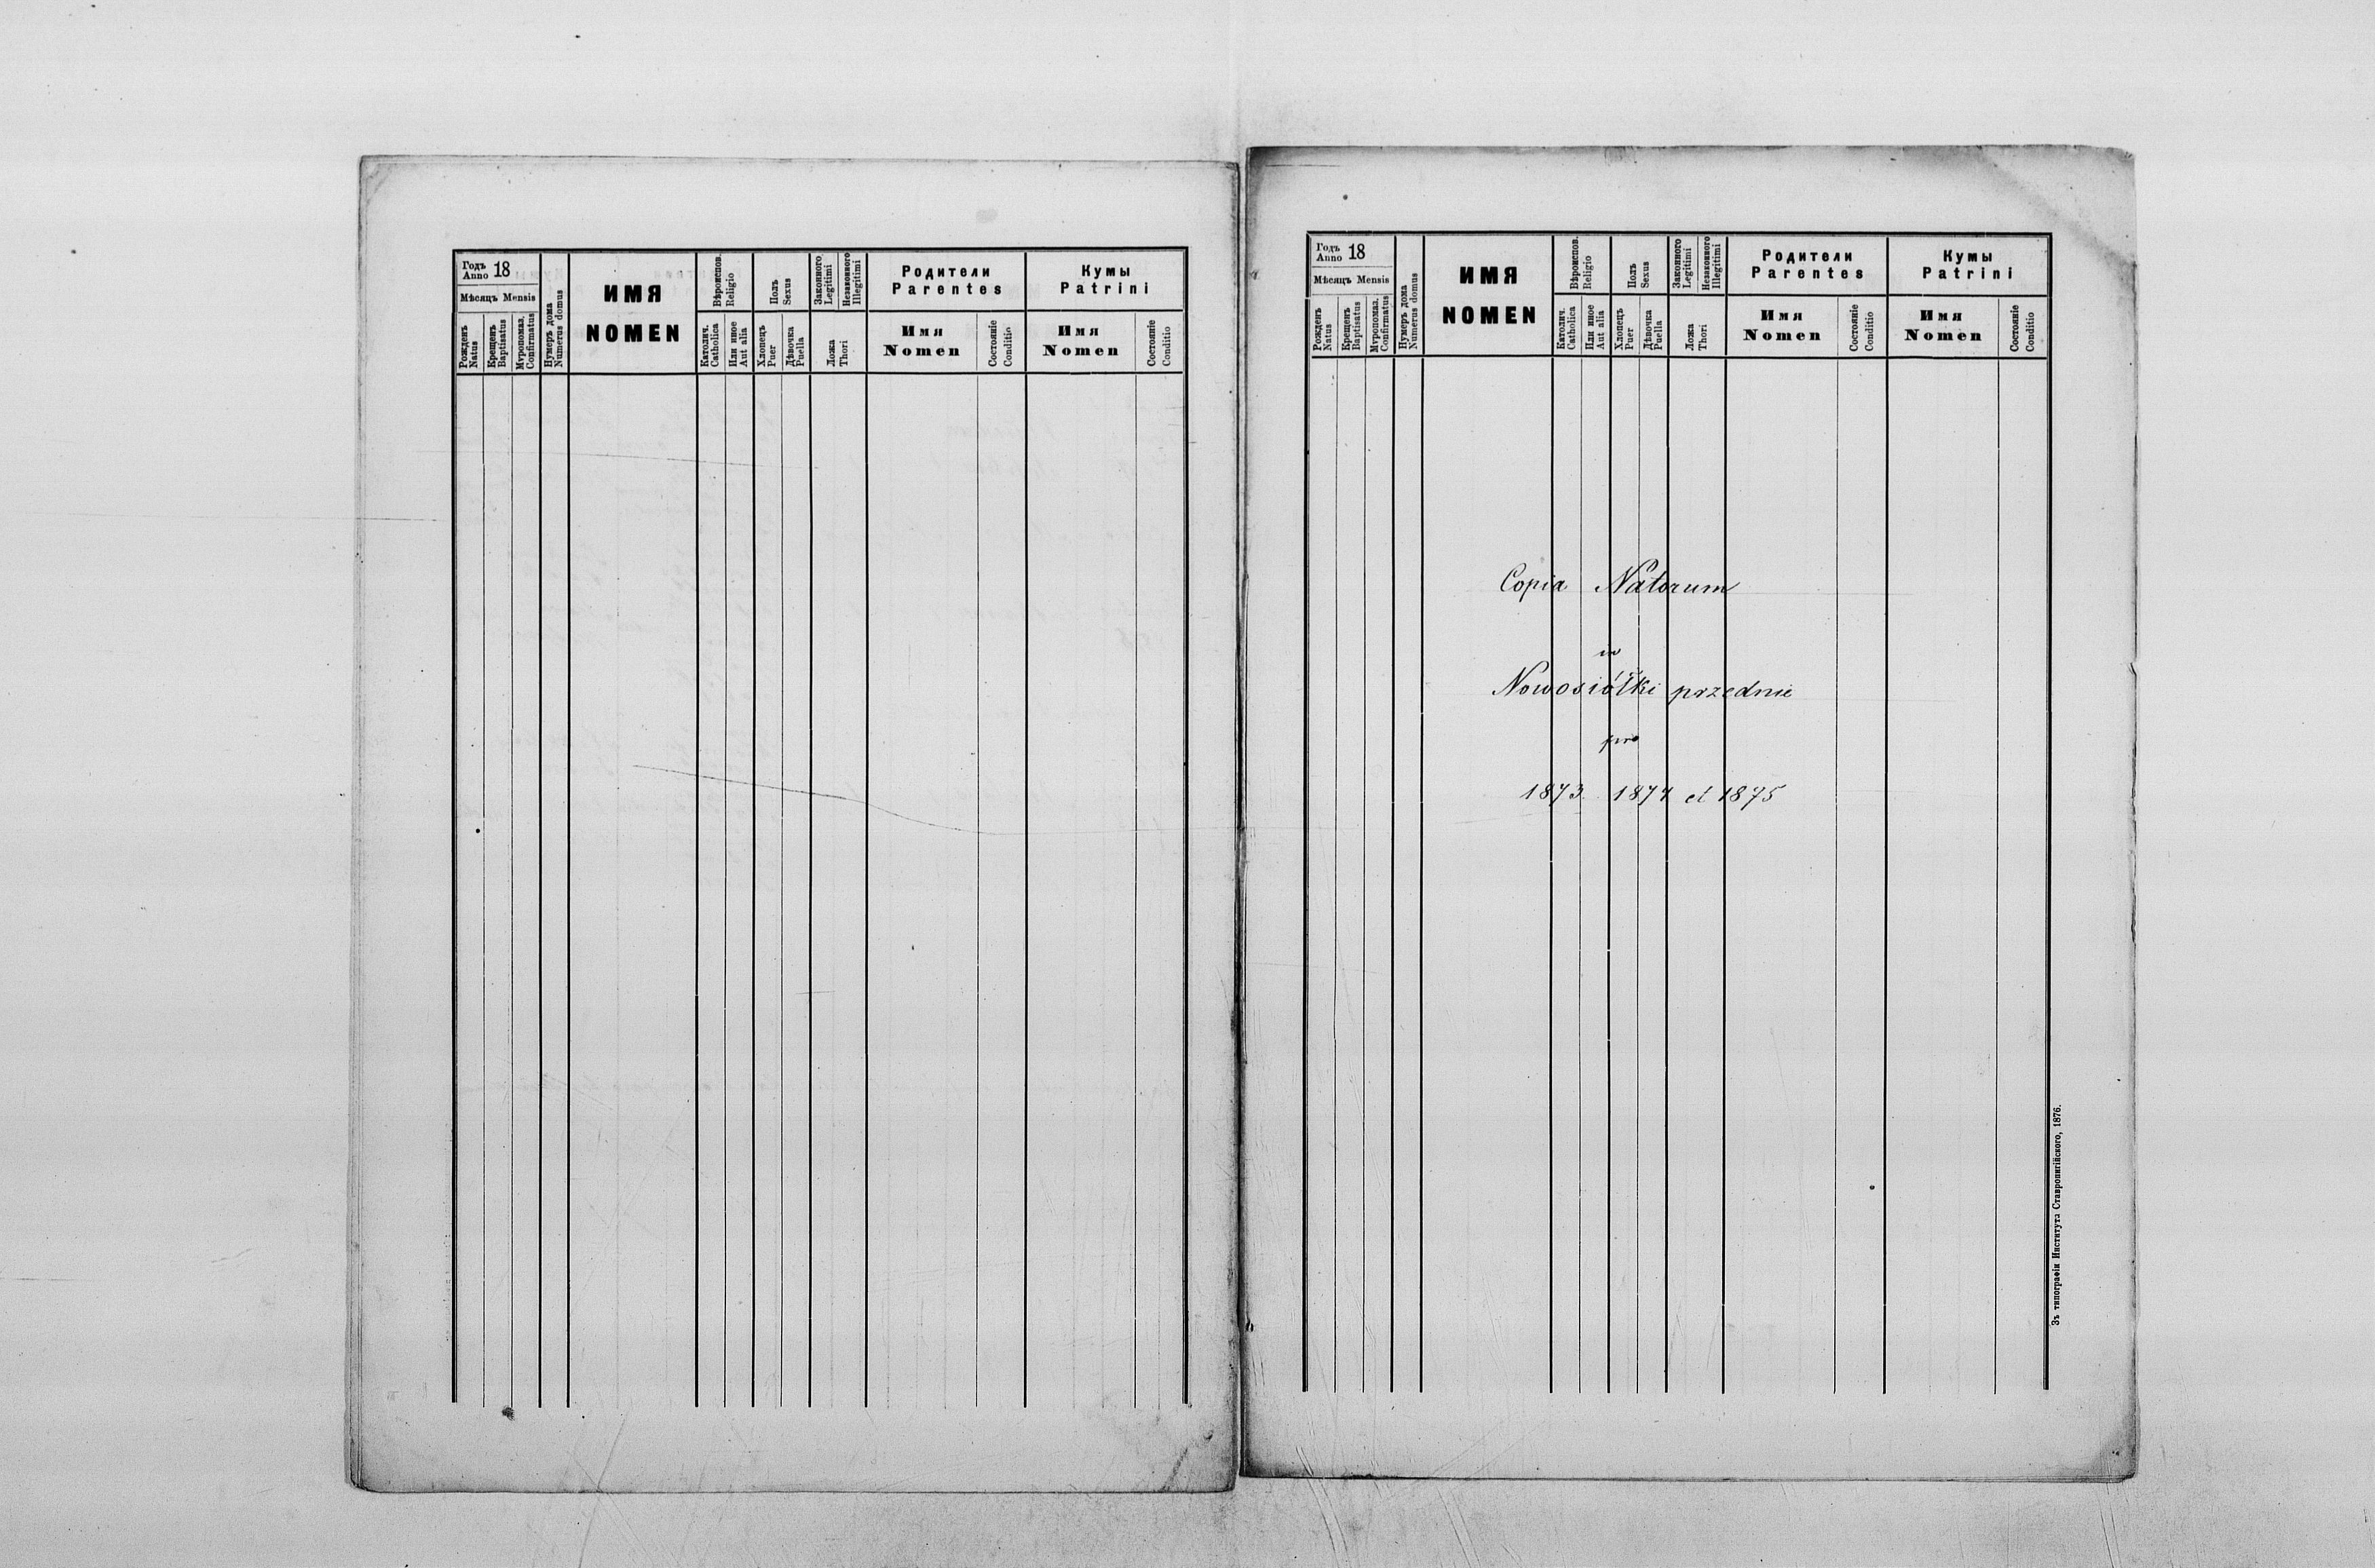 Годъ Anno 18
Мѣсяцъ Mensis
Рожденъ Natus
Крещенъ Baptisatus
Мѵропомаз. Confirmatus
Нумеръ дома Numerus domus
ИМЯ
NOMEN
Вѣроиспов. Religio
Католич. Catholica
Или иное Aut alia
Полъ Sexus
Хлопецъ Puer
Дѣвочка Puella
Законного Legitimi
Незаконного Illegitimi
Ложа Thori
Родители
Parentes
Имя
Nomen
Состояніе Conditio
Кумы
Patrini
Имя
Nomen
Состояніе Conditio
Годъ Anno 18
Мѣсяцъ Mensis
Рожденъ Natus
Крещенъ Baptisatus
Мѵропомаз. Confirmatus
Нумеръ дома Numerus domus
ИМЯ
NOMEN
Вѣроиспов. Religio
Католич. Catholica
Или иное Aut alia
Полъ Sexus
Хлопецъ Puer
Дѣвочка Puella
Законного Legitimi
Незаконного Illegitimi
Ложа Thori
Родители
Parentes
Имя
Nomen
Состояніе Conditio
Кумы
Patrini
Имя
Nomen
Состояніе Conditio
Copia Natorum
w
Nowosiółki przednie
pro
1873 1874 et 1875
Зъ типографіи Института Ставропигійского, 1876.